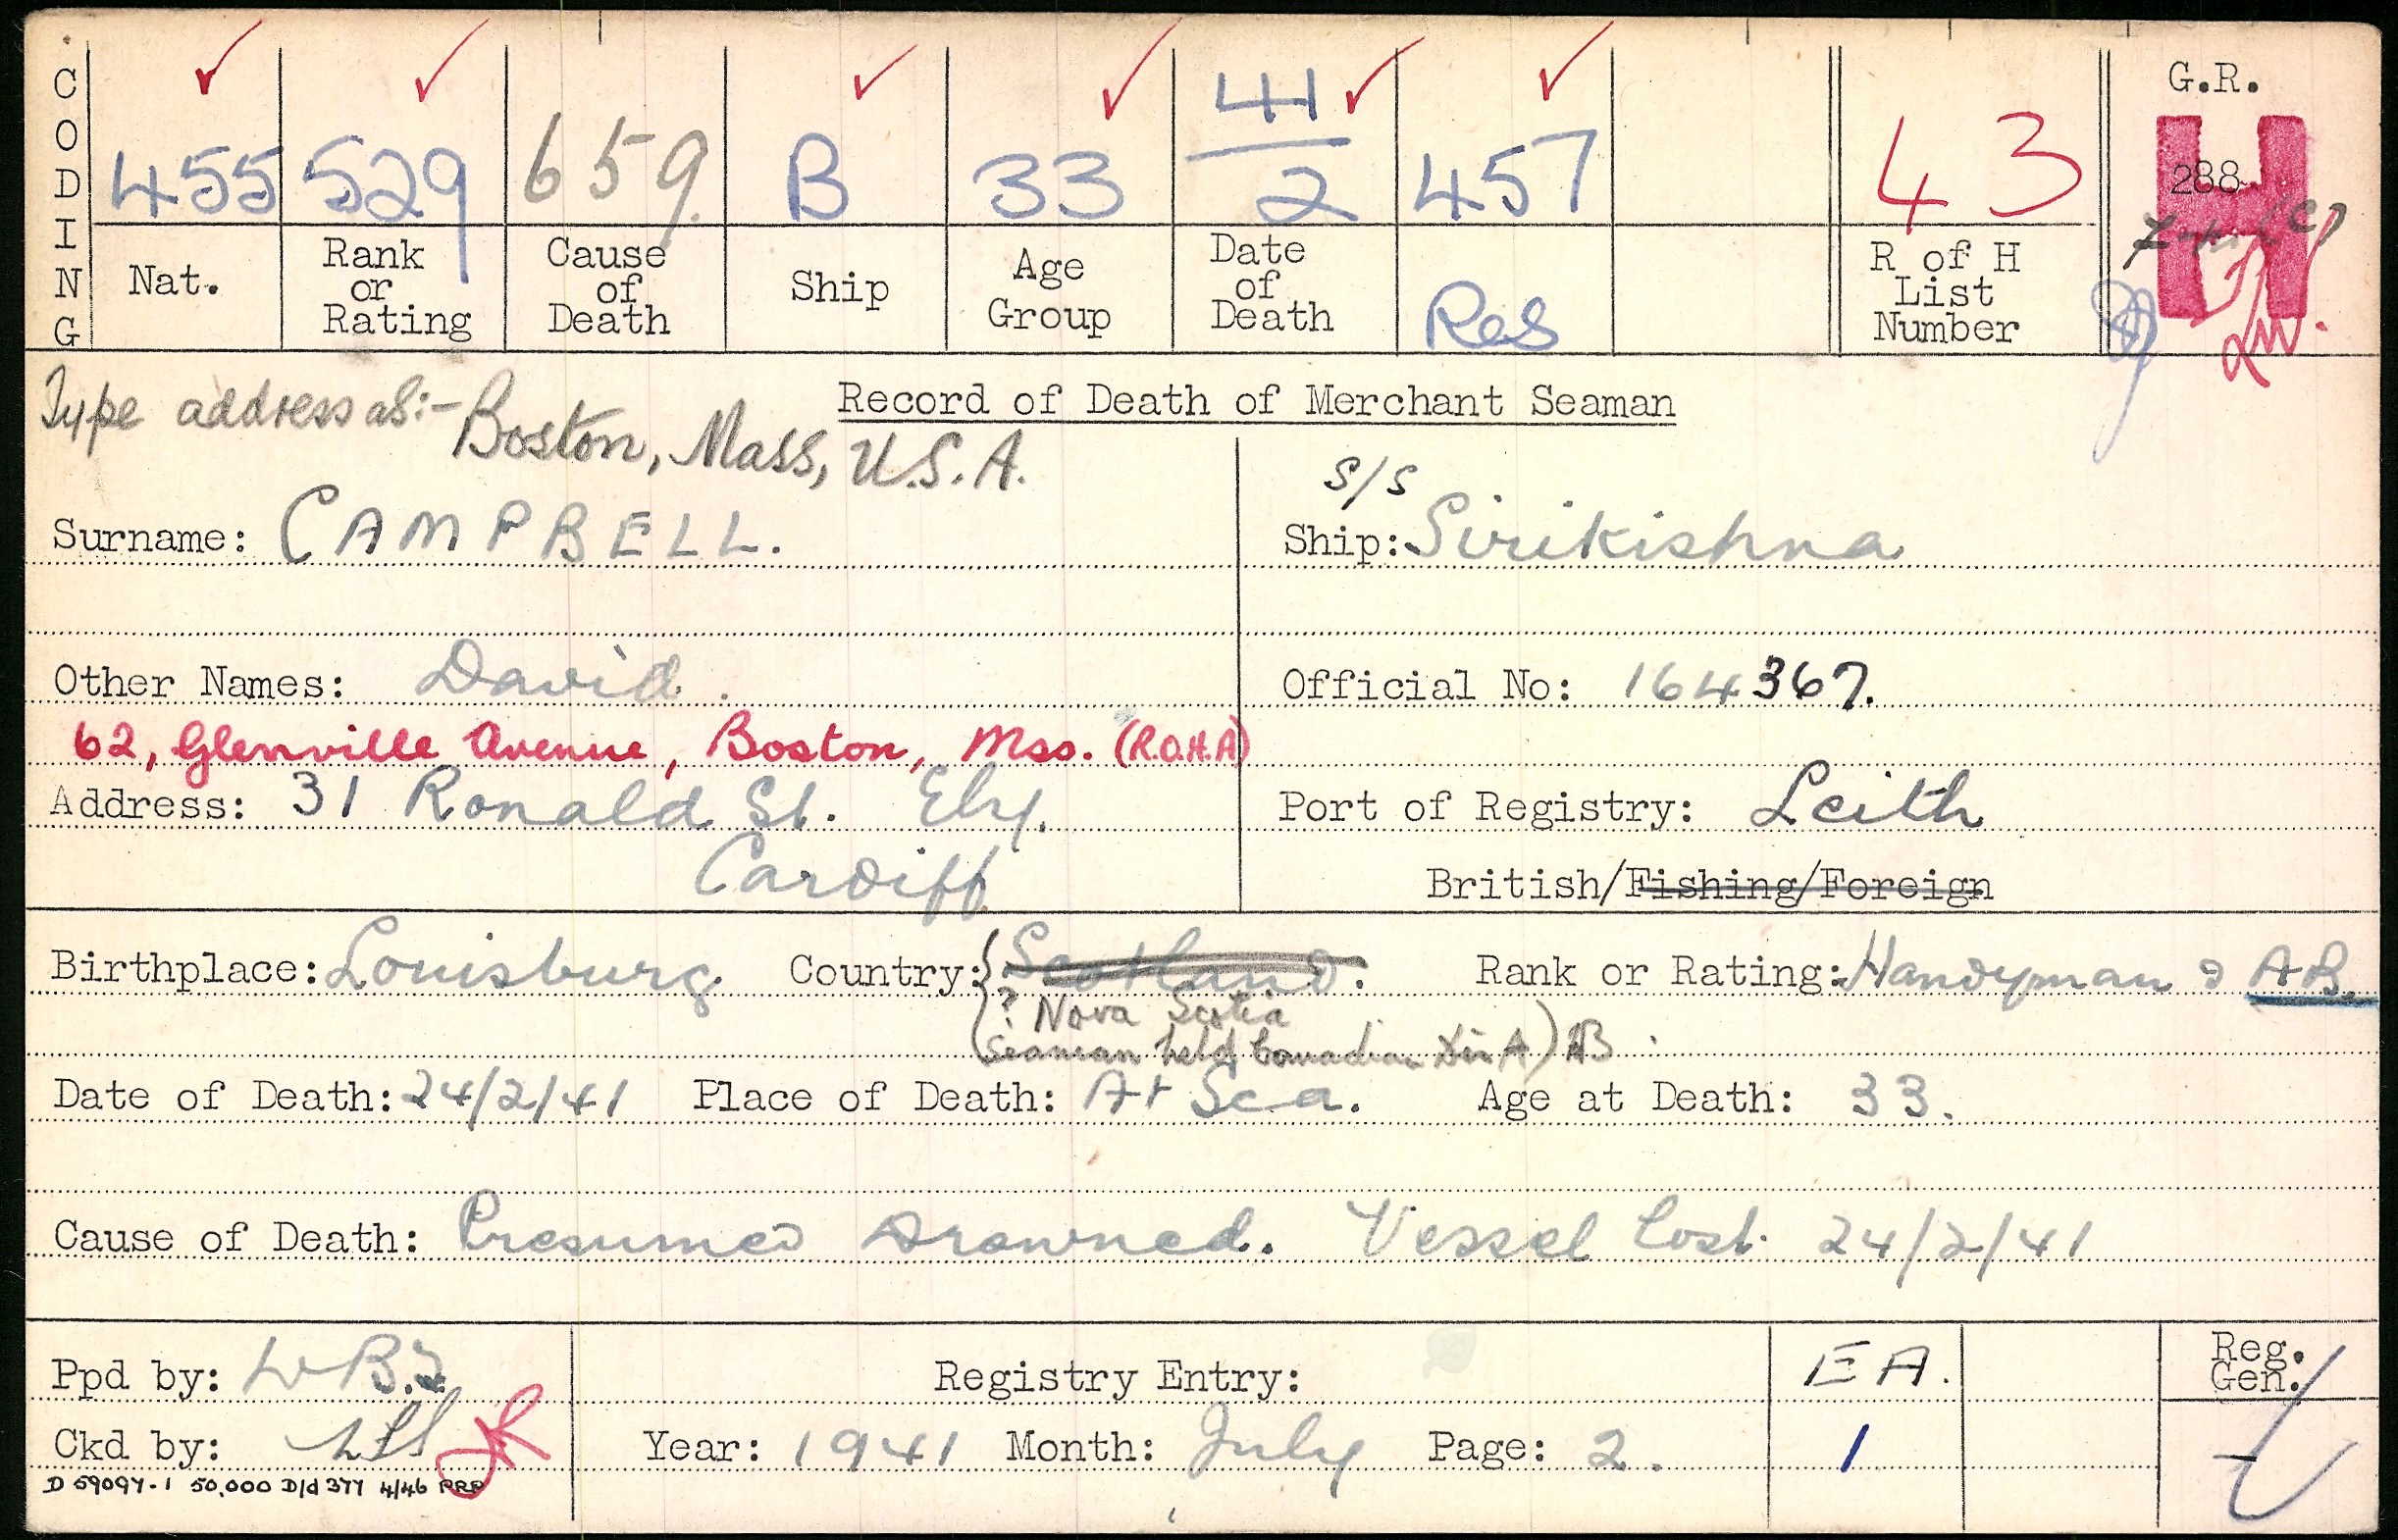 CODING
455 529 659 B 33 41/2 457 43 G.R.
H
288
Nat. Rank or Rating Cause of Death Ship Age Group Date of Death Res R of H List Number
Type address as:- Boston, Mass, U.S.A.
Record of Death of Merchant Seaman
S/S
Surname: CAMPBELL. Ship: Sirikishna
Other Names: David. Official No: 164367.
62, Glenville Avenue, Boston, Mss. (R.O.H.A)
Address: 31 Ronald St. Ely. Port of Registry: Leith
Cardiff British/Fishing/Foreign
Birthplace: Louisburg Country: Scotland. Rank or Rating: Handyman & AB.
? Nova Scotia
(Seaman held Canadian Dis A)
Date of Death: 24/2/41 Place of Death: At Sea. Age at Death: 33.
Cause of Death: Presumed Drowned. Vessel Lost 24/2/41
Ppd by: Registry Entry: EA. Reg. Gen.
Ckd by: Year: 1941 Month: July Page: 2. 1
D 59097-1 50,000 D/d 377 4/46 PRP